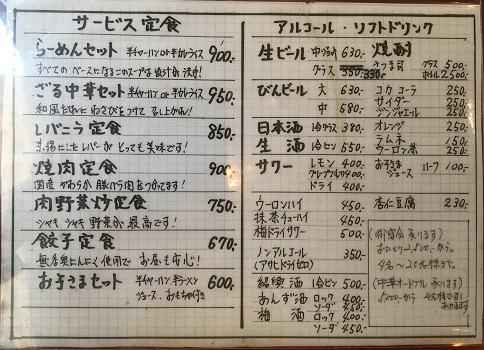 サービス定食
らーめんセット 半チャーハン or 半カレライス 900.-
すべての ベースになるこのスープは
ざる中華セット 半チャーハン or 半カレライス 950.-
和風だれに わさびをつけて 召し上がれ!
レバニラ定食 850.-
レバーが とっても美味です!
焼肉定食 900.-
国産 豚バラ肉を つかってます!
肉野菜炒定食 750.-
シャキ シャキ 野菜が 最高です!
餃子定食 670.-
無臭にんにく使用で お昼も安心!
お子さまセット 半チャーハン 半ラーメン 600.-
ジュース、おもちゃ付き
アルコール・ソフトドリンク
生ビール 中ジョッキ 630.-
グラス 330.-
焼酎
さつま司 グラス 500.-
ボトル 2500.-
びんビール 大 630.-
中 580.-
コカコーラ 250.-
サイダー 250.-
ジンジャエール 250.-
日本酒 1合グラス 380.-
生酒 1合ビン 550.-
オレンジ 250.-
ラムネ 150.-
ウーロン茶 250.-
サワー レモン 400.-
グレープフルーツ 400.-
ドライ 400.-
お子さま ジュース 100.-
ウーロンハイ 450.-
抹茶チューハイ 450.-
梅ドライサワー 500.-
杏仁豆腐 230.-
ノンアルコール 350.-
(アサヒドライゼロ)
紹興酒 1合ビン 500.-
あんず酒 ロック 400.-
ソーダ 450.-
梅酒 ロック 400.-
ソーダ 450.-
(御宴会 承ります)
おひとり 2,500.-から。
4名~20名様まで。
(中華オードブル 承ります)
5000.-から